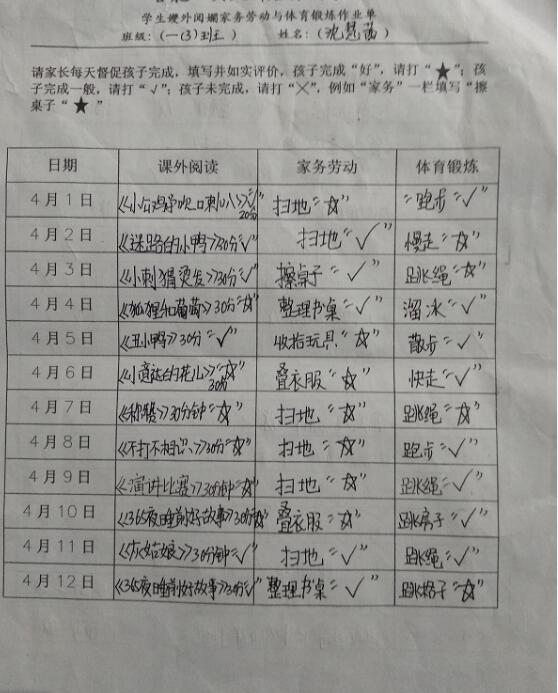 学生课外阅读家务劳动与体育锻炼作业单
班级：（一（3）班） 姓名：（沈）
请家长每天督促孩子完成，填写并如实评价，孩子完成“好”，请打“★”；孩
子完成一般，请打“√”；孩子未完成，请打“×”，例如“家务”一栏填写“擦
桌子“★”
日期 课外阅读 家务劳动 体育锻炼
4月1日 《小公鸡学吹喇叭》“√”20分 扫地“☆” “跑步“√”
4月2日 《迷路的小鸭》30分“√” 扫地“√” 慢走“☆”
4月3日 《小刺猬烫发》30分“√” 擦桌子“√” 跳绳“☆”
4月4日 《狐狸和葡萄》30分“☆” 整理书桌“√” 溜冰“√”
4月5日 《丑小鸭》30分“√” 收拾玩具“☆” 散步“√”
4月6日 《小意达的花儿》“☆”30分 叠衣服“☆” 快走“√”
4月7日 《称赞》30分钟“☆” 扫地“☆” 跳绳“☆”
4月8日 《不打不相识》30分“☆” 扫地“☆” 跑步“√”
4月9日 《演讲比赛》30分钟“☆” 扫地“☆” 跳绳“√”
4月10日 《365夜睡前好故事》30分“☆” 叠衣服“☆” 跳房子“√”
4月11日 《灰姑娘》30分钟“√” 扫地“√” 跳绳“√”
4月12日 《365夜睡前好故事》30分“√” 整理书桌“√” 跳格子“☆”